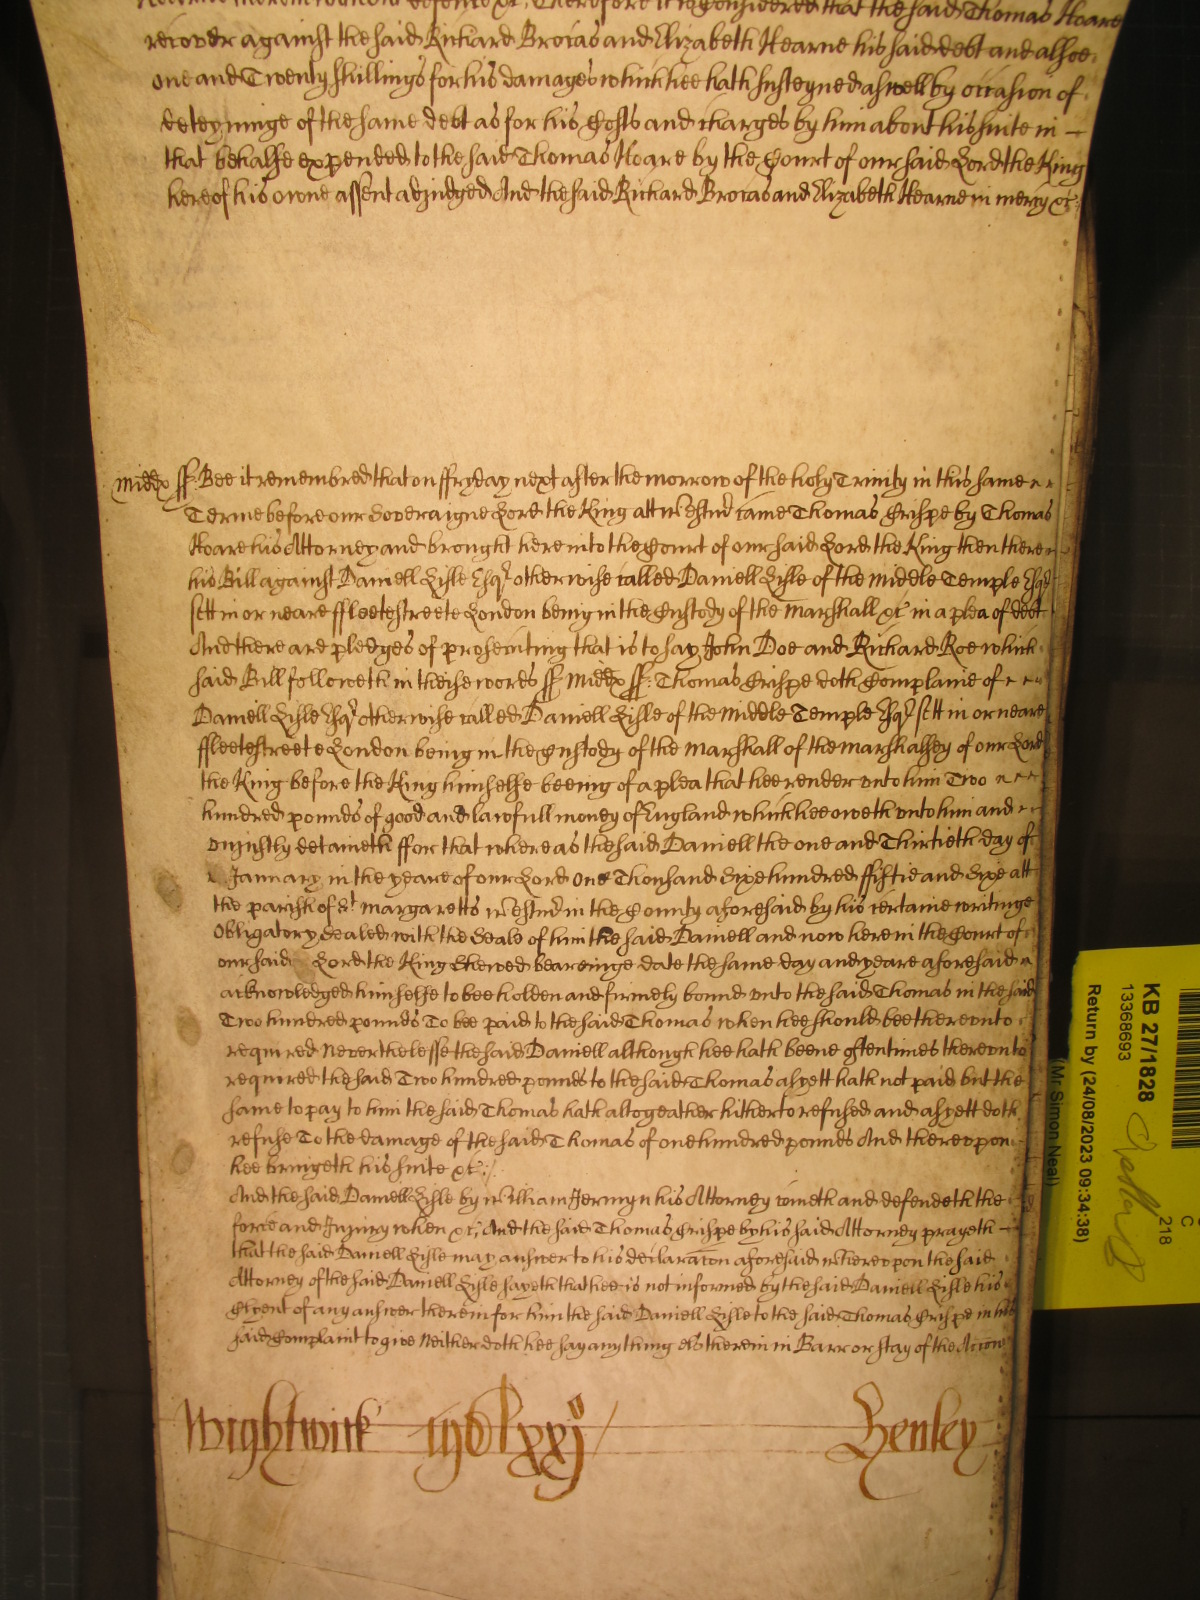 Therefore it is considered that the said Thomas Hoare
recover against the said Richard Brocas and Elizabeth Hearne his said debt and alsoe
one and Twenty shillings for his damages which hee hath susteyned aswell by occasion of
deteyninge of the same debt as for his Costs and charges by him about his suite in
that behalfe expended to the said Thomas Hoare by the Court of our said Lord the King
here of his owne assent adjudged And the said Richard Brocas and Elizabeth Hearne in mercy &c
Middx ss Bee it remembred that on ffryday next after the morrow of the holy Trinity in this same
Terme before our Soveraigne Lord the King att Westmr came Thomas Crispe by Thomas
Hoare his Attorney and brought here into the Court of our said Lord the King then there
his Bill against Daniell Lisle Esqr otherwise called Daniell Lisle of the Middle Temple Esqr
sett in or neare ffleetestreete London being in the Custody of the Marshall &c in a plea of debt
And there are pledges of prosecuting that is to say John Doe and Richard Roe which
said Bill followeth in theise words ss Middx ss: Thomas Crispe doth Complaine of
Daniell Lisle Esqr otherwise called Daniell Lisle of the Middle Temple Esqr sett in or neare
ffleetestreete London being in the Custody of the Marshall of the Marshalsey of our Lord
the King before the King himselfe beeing of a plea that hee render unto him Two
hundred pounds of good and lawfull money of England which hee oweth unto him and
unjustly detaineth ffor that whereas the said Daniell the one and Thirtieth day of
January in the yeare of our Lord One Thousand Sixe hundred ffiftie and Sixe att
the parish of St Margaretts Westmr in the County aforesaid by his certaine writinge
Obligatory Sealed with the Seale of him the said Daniell and now here in the Court of
our said Lord the King Shewed beareinge date the same day and yeare aforesaid
acknowledged himselfe to bee holden and firmely bound unto the said Thomas in the said
Two hundred pounds To bee paid to the said Thomas when hee should bee thereunto
required Neverthelesse the said Daniell although hee hath beene oftentimes thereunto
required the said Two hundred pounds to the said Thomas as yett hath not paid but the
same to pay to him the said Thomas hath altogeather hitherto refused and as yett doth
refuse To the damage of the said Thomas of one hundred pounds And thereupon
hee bringeth his suite &c:
And the said Daniell Lisle by William Jermyn his Attorney cometh and defendeth the
force and Injury when &c; And the said Thomas Crispe by his said Attorney prayeth
that the said Daniell Lisle may answer to his declaracon aforesaid Whereupon the said
Attorney of the said Daniell Lisle sayeth that hee is not informed by the said Daniell Lisle his
Clyent of any answer therein for him the said Daniell Lisle to the said Thomas Crispe in his
said Complaint to give Neither doth hee say any thing els therein in Barr or stay of the Accion
Wightwick Henley
KB 27/1828
13368693
Return by (24/08/2023 09:34:38)
(Mr Simon Neal)
C
218